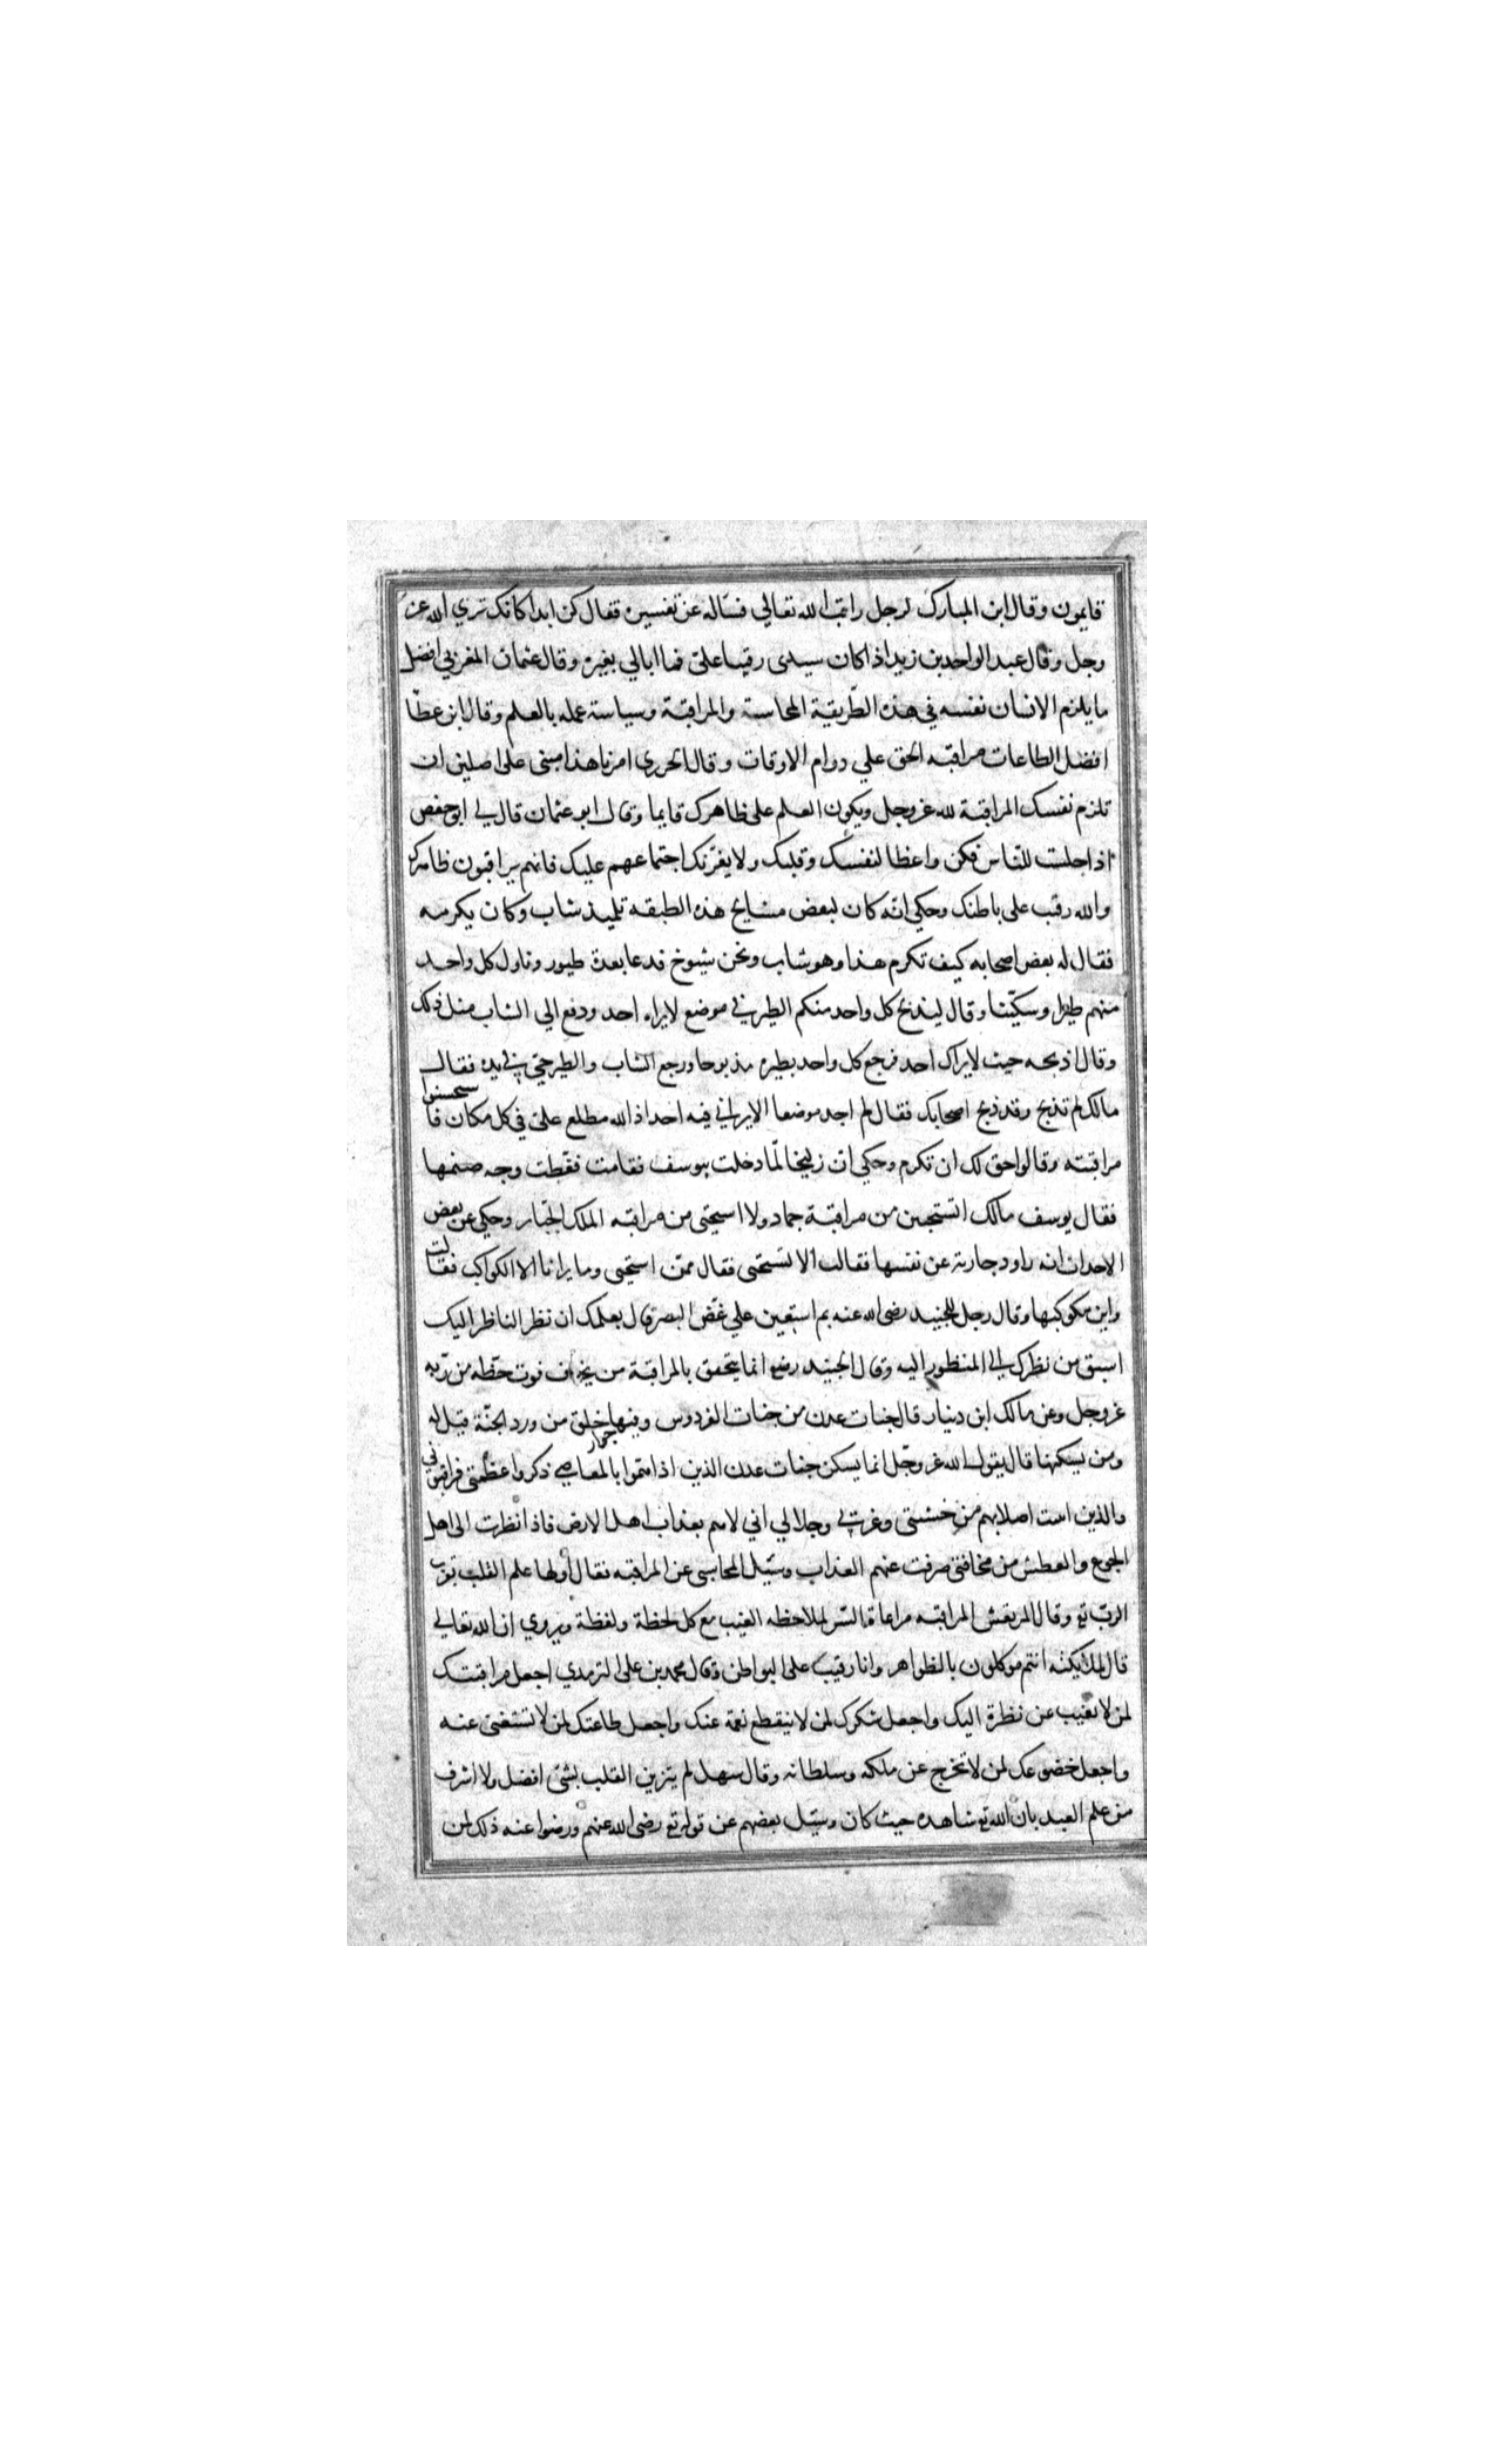 قايمون وقال ابن المبارك لرجل راقب الله تعالي فسأله عن تفسيره فقال كن ابدا كانك تري الله عز
وجل وقال عبد الواحد بن زيد اذا كان سيدى رقيبا علىّ فما ابالي بغيره وقال عثمان المغربي افضل
ما يلزم الانسان نفسه في هذه الطّريقية المحاسبة والمراقبة وسياسة عمله بالعلم وقال ابن عطّا
افضل الطاعات مراقبه الحق علي دوام الاوقات وقال الجريرى امرنا هذا مبنى على اصلين ان
تلزم نفسك المراقبة لله عز وجل ويكون العلم على ظاهرك قايما وقال ابو عثمان قال لي ابو حفص
اذا جلست للنّاس فكن واعظا لنفسك وقلبك ولا يغرّنك اجتماعهم عليك فانهم يراقبون ظاهرك
والله رقيب على باطنك وحكي انّه كان لبعض مشايخ هذه الطبقه تلميذ شاب وكان يكرمه
فقال له بعض اصحابه كيف تكرم هذا وهو شاب ونحن شيوخ فدعا بعدة طيور وناول كل واحد
منهم طيرا وسكّينا وقال ليذبح كل واحد منكم الطير في موضع لا يراه احد ودفع الي الشاب مثل ذلك
وقال اذبحه حيث لا يراك احد فرجع كل واحد بطيره مذبوحا ورجع الشاب والطير حىّ في يده فقال
مالك لم تذبح وقد ذبح اصحابك فقال لم اجد موضعا الا يراني فيه احد اذ الله مطلع علىّ في كل مكان فاستحسنوا
مراقبته وقالوا حق لك ان تكرم وحكي ان زليخا لمّا دخلت بيوسف فقامت فغّطت وجه صنمها
فقال يوسف مالك اتستحيين من مراقبة جماد ولا استحيى من مراقبه الملك الجبّار وحكي عن بعض
الاحداث انه راود جارية عن نفسها فقالت الا تستحى فقال ممّن استحيى وما يرانا الا الكواكب فقالت
واين مكوكبها وقال رجل للجنيد رضى الله عنه بم استعين علي غضّ البصر قال بعلمك ان نظر الناظر اليك
اسبق من نظرك الي المنظور اليه وقال الجنيد رضع انما يتحقق بالمراقبة من يخاف فوت حظّه من ربّه
عز وجل وعن مالك ابن دينار قال جنات عدن من جنات الفردوس وفيها جوار خلق من ورد الجنّة قيل له
ومن يسكنها قال يقول الله عز وجّل انما يسكن جنات عدن الذين اذا همّوا بالمعاصي ذكروا عظمتى فراقبوني
والذين انثنت اصلابهم من خشيتى وعزتي وجلالي اني لاهم بعذاب اهل الارض فاذا نظرت الى اهل
الجوع والعطش من مخافتى صرفت عنهم العذاب وسئيل المحاسبى عن المراقبه فقال أولها علم القلب بقرب
الربّ تع وقال المرتعش المراقبه مراعاة السّر لملاحظه الغيب مع كل لحظة ولفظة ويروي ان الله تعالي
قال لملايكته انتم موكلون بالظواهر وانا رقيب على البواطن وقال محمد بن على الترمدي اجعل مراقبتك
لمن لا تغيب عن نظرة اليك واجعل شكرك لمن لا ينقطع نعمة عنك واجعل طاعتك لمن لا تستغنى عنه
واجعل خضوعك لمن لا تخرج عن ملكه وسلطانه وقال سهل لم يتزين القلب بشئ افضل ولا اشرف
من علم العبد بان الله تع شاهده حيث كان وسئيل بعضهم عن قوله تع رضى الله عنهم ورضوا عنه ذلك لمن